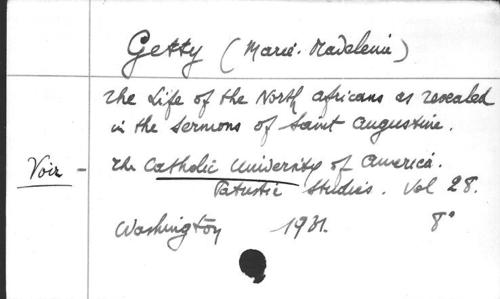 Getty (Marie-Madeleine)
The Life of the North Africans as revealed
in the Sermons of Saint Augustine.
Voir - The Catholic University of America.
Patristic Studies. Vol 28.
Washington 1931. 8°